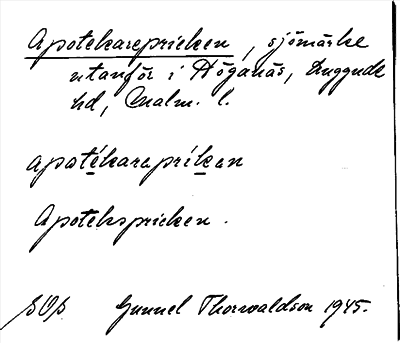 Apotekarepricken, sjömärke
utanför i Höganäs, Luggude
hd, Malm. l.
apotékarapríkan
Apotekspricken.
SOS Gunnel Thorwaldson 1945.